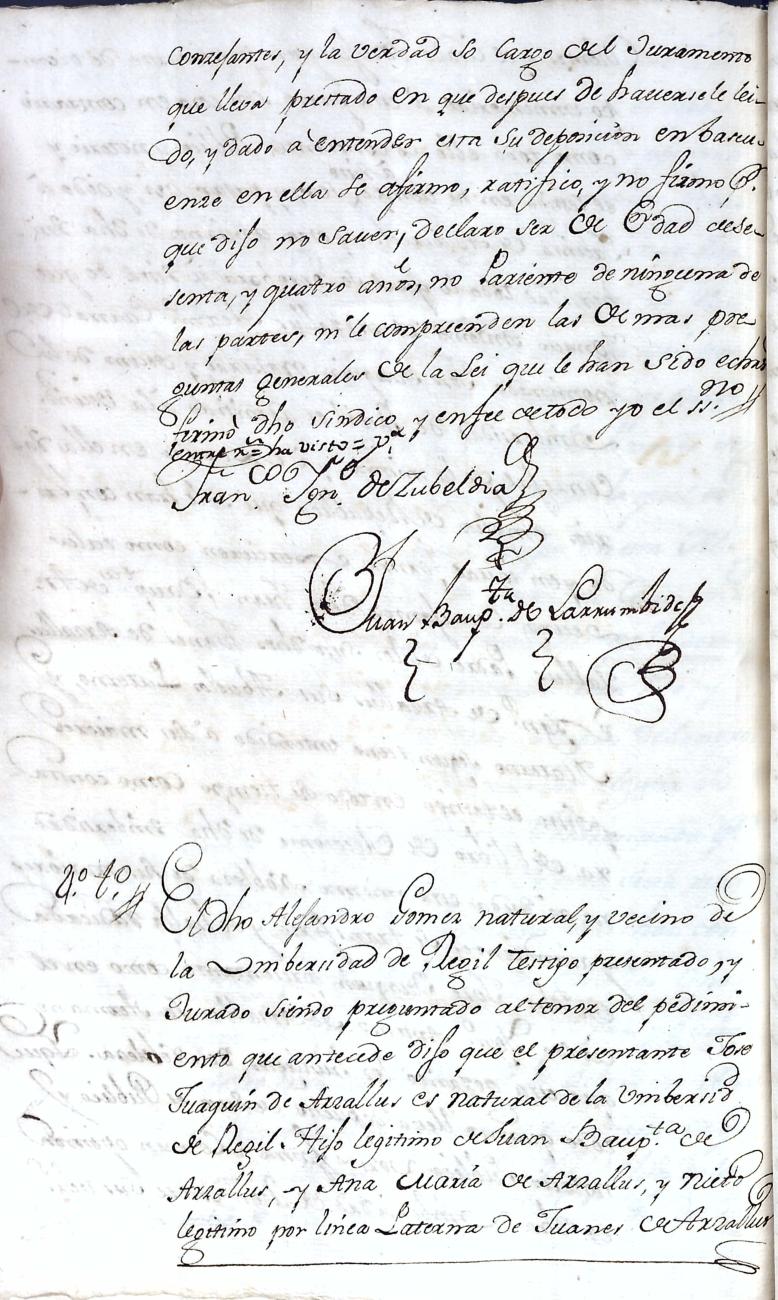 Contestantes, y la verdad so cargo del Juramento
que lleva prestado en que despues de haversele lei-
do, y dado à entender esta su deposición en bascu-
enze en ella se afirmo, ratifico, y no firmo P.r
que dijo no saver, declaro ser de Edad de se-
senta, y quatro años, no Pariente de ninguna de
las partes, ni le comprienden las de mas pre
guntas generales de la Lei que le han sido echas
firmò dho sindico, y enfee de todo yo el ss.no
entre r.s = ha visto = v.e
Fran.co Ign.o de Zubeldia
Juan Baup.ta de Larrumbide
4.o t.o El dho Alejandro Gomez natural, y vecino de
la Unibersidad de Regil Testigo presentado, y
Jurado siendo preguntado al tenor del pedimi-
ento que antecede dijo que el presentante Jose
Juaquin de Arzallus es natural de la Unibersid.d
de Regil Hijo legitimo de Juan Baup.ta de
Arzallus, y Ana Maria de Arzallus, y Nieto
legitimo por linea Paterna de Juanes de Arzallus